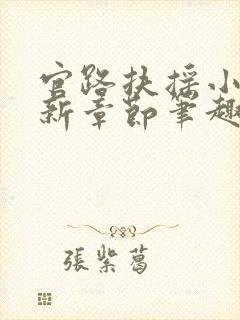 官路扶摇小
新章節筆趣
張紫葛